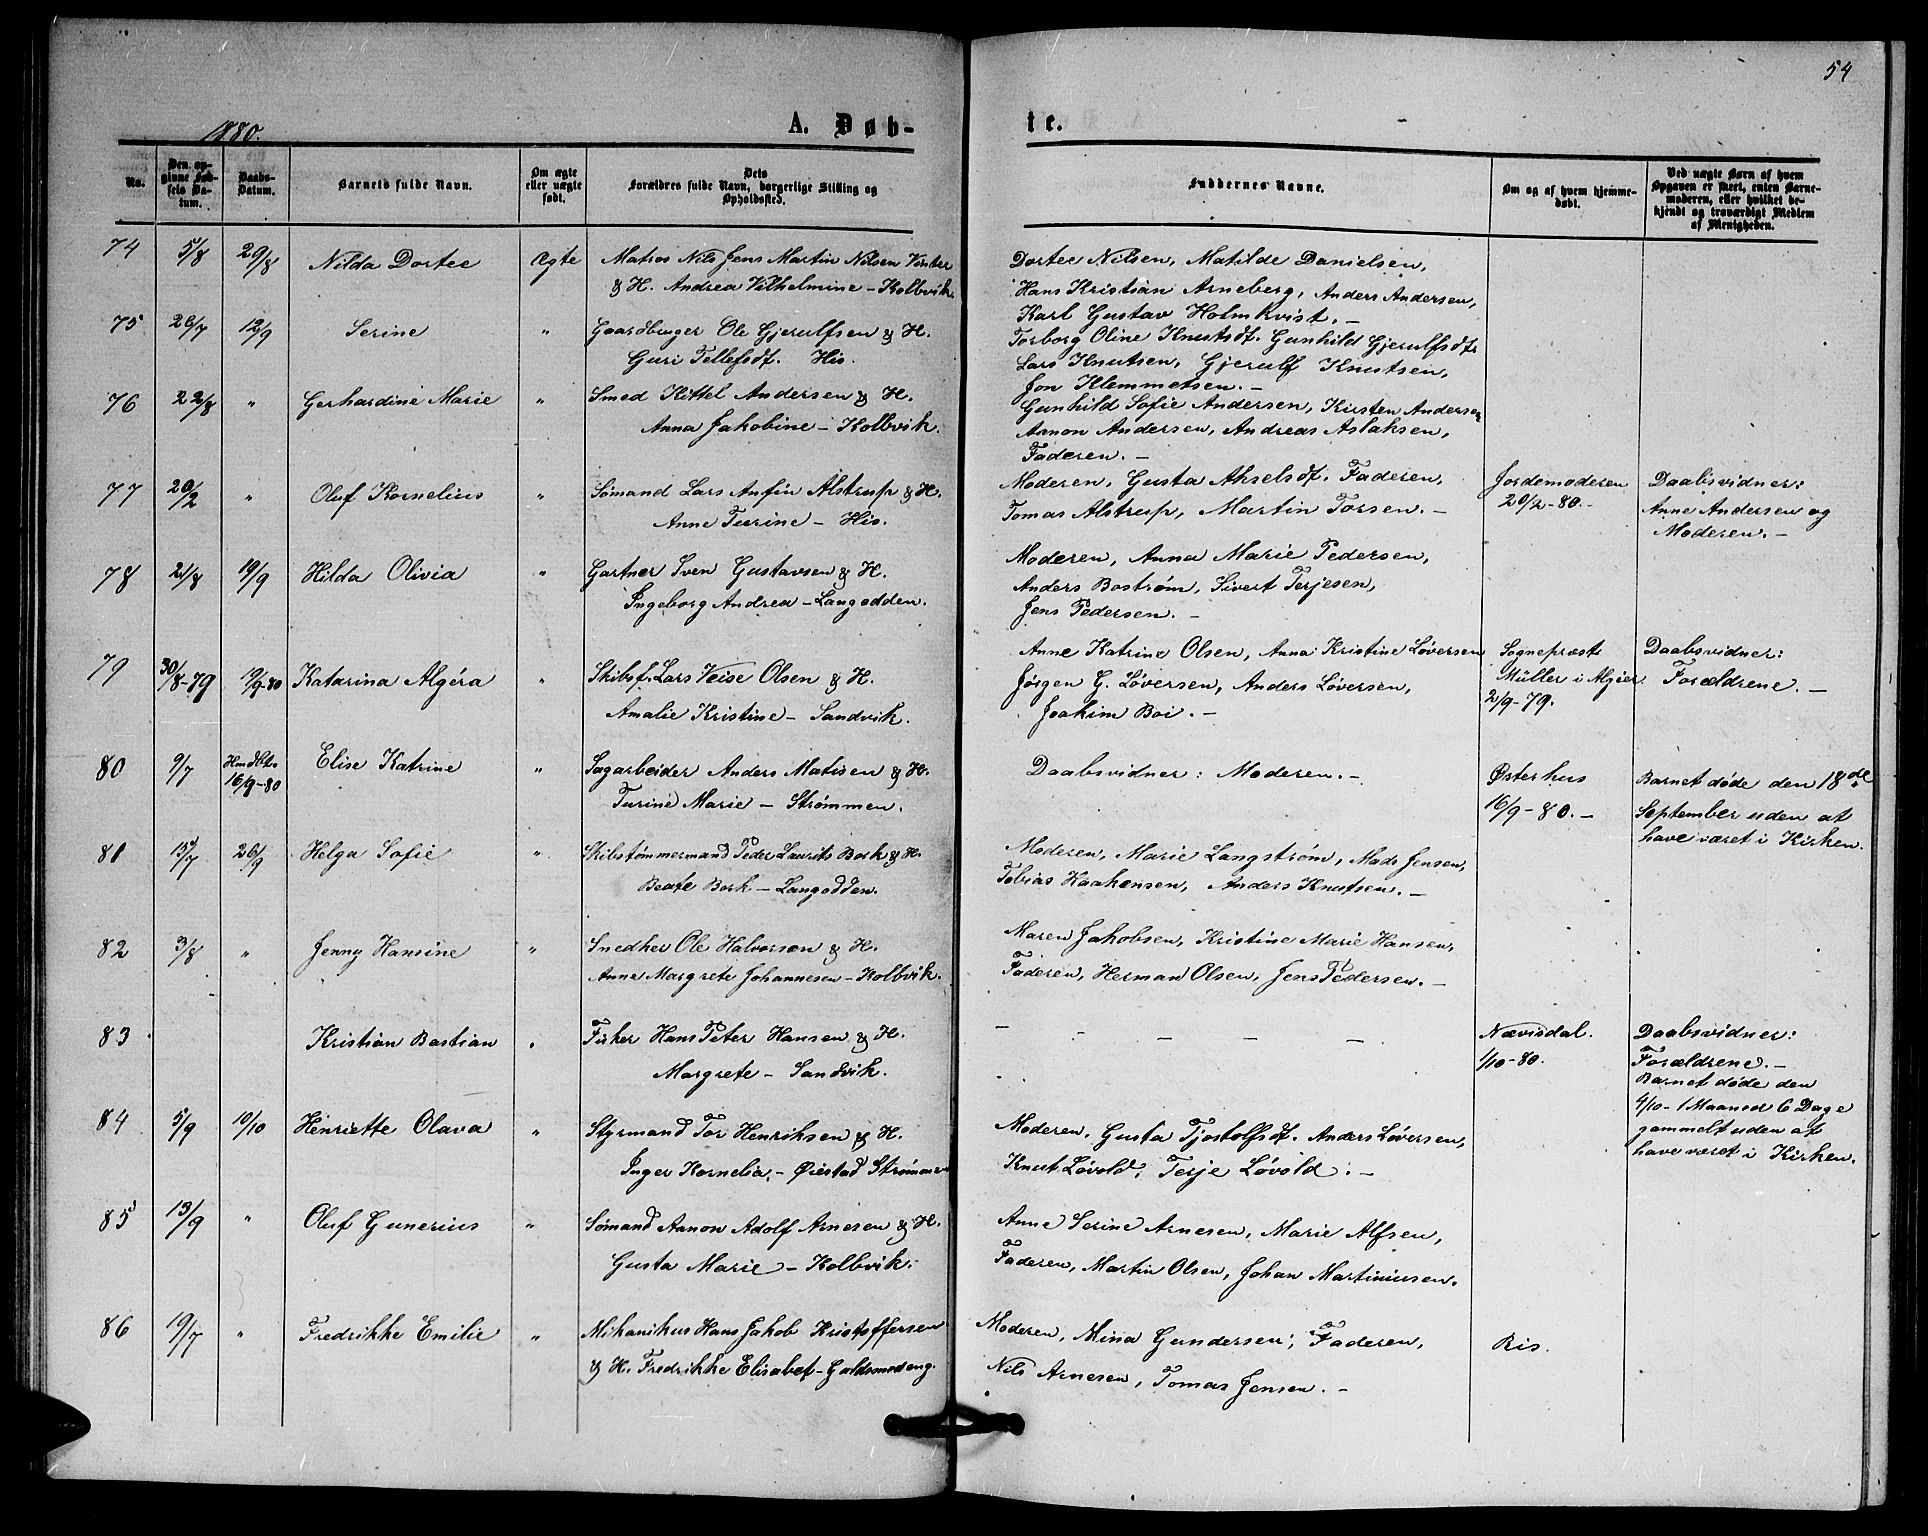 54
1880.
A. Døb-
te.
No.
Den opgivne Fødsels Datum.
Daabs-Datum.
Barnets fulde Navn.
Om ægte eller uægte født.
Dets Forældres fulde Navn, borgerlige Stilling og Opholdssted.
Faddernes Navne.
Om og af hvem hjemmedøbt.
Ved uægte Børn af hvem Opgaven er skeet, enten Barnemoderen, eller hvilket bekjendt og troværdigt Medlem af Menigheden.
74 5/8 29/8 Nilda Dortee Ægte Matros Nils Jens Martin Nilsen Vinter
& H. Andrea Vilhelmine - Kolbvik.
Dortee Nilsen, Matilde Danielsen,
Hans Kristian Arneberg, Anders Andersen,
Karl Gustav Holmkvist. -
75 26/7 12/9 Serine " Gaardbruger Ole Gjerulfsen & H.
Guri Tellefsdt. His.
Torborg Oline Knutsdt. Gunhild Gjerulfsdt.
Lars Knutsen, Gjerulf Knutsen,
Jon Klemmetsen. -
76 22/8 " Gerhardine Marie " Smed Kittel Andersen & H.
Anna Jakobine - Kolbvik.
Gunhild Sofie Andersen, Kirsten Andersen
Aanon Andersen, Andreas Aslaksen,
Faderen. -
77 20/2 " Oluf Kornelius " Sømand Lars Anfin Alstrup & H.
Anne Turine - His.
Moderen, Gusta Akselsdt. Faderen,
Tomas Alstrup, Martin Torsen. -
Jordemoderen
20/2-80. -
Daabsvidner:
Anne Andersen og
Moderen. -
78 21/8 19/9 Hilda Olivia " Gartner Sven Gustavsen & H.
Ingeborg Andrea - Langodden.
Moderen, Anna Marie Pedersen,
Anders Bostrøm, Sivert Terjesen,
Jens Pedersen. -
79 30/8-79 19/9-80 Katarina Algéra " Skibsf. Lars Veise Olsen & H.
Amalie Kristine - Sandvik.
Anne Katrine Olsen, Anna Kristine Løversen
Jørgen G. Løversen, Anders Løversen,
Joakim Boi. -
Sognepræst
Müller i Algier
2/9-79.
Daabsvidner:
Forældrene. -
80 9/7 Hmdbt. 16/9-80 Elise Katrine " Sagarbeider Anders Matisen & H.
Turine Marie - Strømmen.
Daabsvidner: Moderen. -
Østerhus
16/9-80. -
Barnet døde den 18de
September uden at
have været i Kirken.
81 15/7 26/9 Helga Sofie " Skibstømmermand Peder Laurits Bork & H.
Beate Bork - Langodden.
Moderen, Marie Langstrøm, Mads Jensen,
Tobias Haakensen, Anders Knutsen. -
82 3/8 " Jenny Hansine " Snedker Ole Halvorsen & H.
Anne Margrete Johannesen - Kolbvik.
Maren Jakobsen, Kristine Marie Hansen,
Faderen, Herman Olsen, Jens Pedersen. -
83 Kristian Bastian " Fisker Hans Peter Hansen & H.
Margrete - Sandvik.
- - - - -
Nævisdal.
1/10-80.
Daabsvidner:
Forældrene. -
Barnet døde den
4/10 - 1 Maaned 6 Dage
gammelt uden at
have været i Kirken.
84 5/9 10/10 Henriette Olava " Styrmand Tor Henriksen & H.
Inger Kornelia. - Øiestad Strømmen
Moderen, Gusta Tjostolfsdt. Anders Løversen,
Knut Løvold, Terje Løvold. -
85 13/9 " Oluf Gunerius " Sømand Aanon Adolf Arnesen & H.
Gusta Marie - Kolbvik.
Anne Serine Arnesen, Marie Alfsen,
Faderen, Martin Olsen, Johan Martiniusen.
86 19/7 " Fredrikke Emilie " Mekanikus Hans Jakob Kristoffersen
& H. Fredrikke Elisabet - Guldsmedeng.
Moderen, Mina Gundersen, Faderen,
Nils Arnesen, Tomas Jensen. -
Ris.